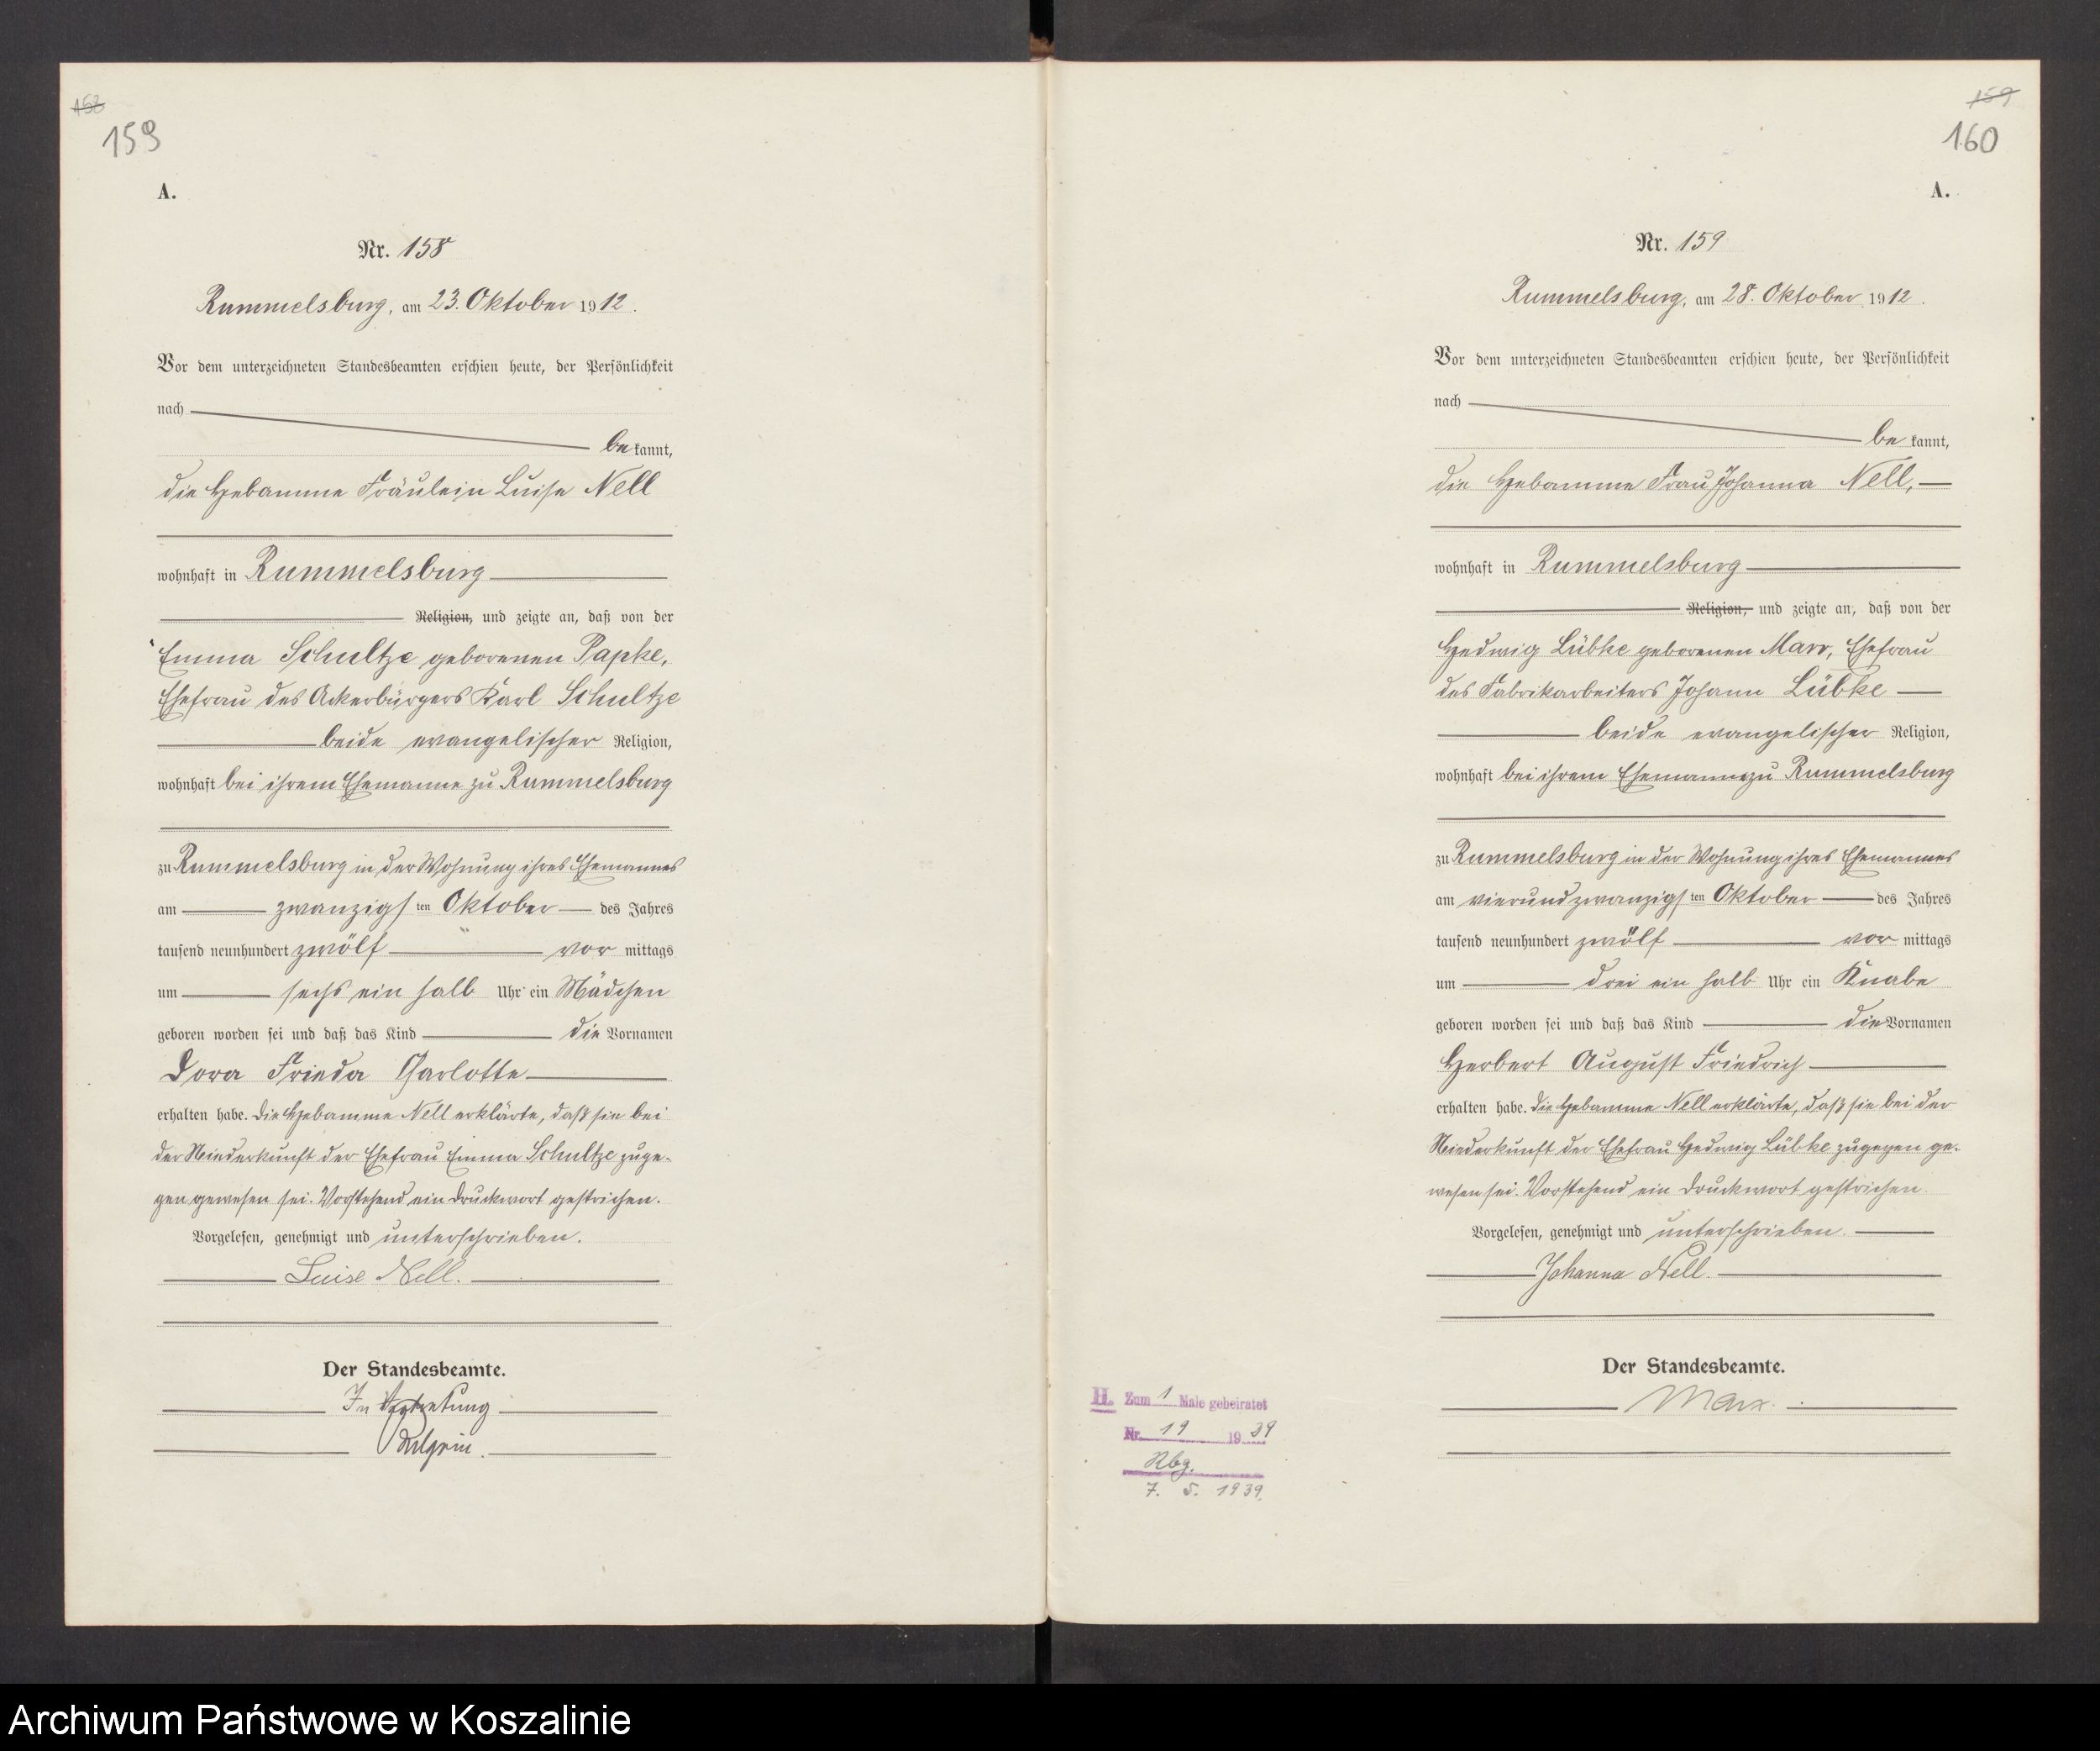 158
159
A.
Nr. 158
Rummelsburg, am 23. Oktober 1912.
Vor dem unterzeichneten Standesbeamten erschien heute, der Persönlichkeit
nach
be kannt,
die Hebamme Fräulein Luise Nell
wohnhaft in Rummelsburg
Religion, und zeigte an, daß von der
Emma Schultze geborenen Papke,
Ehefrau des Ackerbürgers Karl Schultze
beide evangelischer Religion,
wohnhaft bei ihrem Ehemanne zu Rummelsburg
zu Rummelsburg in der Wohnung ihres Ehemannes
am zwanzigsten Oktober des Jahres
tausend neunhundert zwölf vor mittags
um sechs ein halb Uhr ein Mädchen
geboren worden sei und daß das Kind die Vornamen
Dora Frieda Charlotte
erhalten habe. Die Hebamme Nell erklärte, daß sie bei
der Niederkunft der Ehefrau Emma Schultze zuge-
gen gewesen sei. Vorstehend ein Druckwort gestrichen.
Vorgelesen, genehmigt und unterschrieben.
Luise Nell.
Der Standesbeamte.
In Vertretung
159
160
A.
Nr. 159
Rummelsburg, am 28. Oktober 1912.
Vor dem unterzeichneten Standesbeamten erschien heute, der Persönlichkeit
nach
be kannt,
die Hebamme Frau Johanna Nell,
wohnhaft in Rummelsburg
Religion, und zeigte an, daß von der
Hedwig Lübke geborenen Marr, Ehefrau
des Fabrikarbeiters Johann Lübke
beide evangelischer Religion,
wohnhaft bei ihrem Ehemanne zu Rummelsburg
zu Rummelsburg in der Wohnung ihres Ehemannes
am vierundzwanzigsten Oktober des Jahres
tausend neunhundert zwölf vor mittags
um drei ein halb Uhr ein Knabe
geboren worden sei und daß das Kind die Vornamen
Herbert August Friedrich
erhalten habe. Die Hebamme Nell erklärte, daß sie bei der
Niederkunft der Ehefrau Hedwig Lübke zugegen ge-
wesen sei. Vorstehend ein Druckwort gestrichen.
Vorgelesen, genehmigt und unterschrieben.
Johanna Nell.
Der Standesbeamte.
Marx.
H. Zum 1 Male geheiratet
Nr. 19 1939
Rbg.
7. 5. 1939.
Archiwum Państwowe w Koszalinie